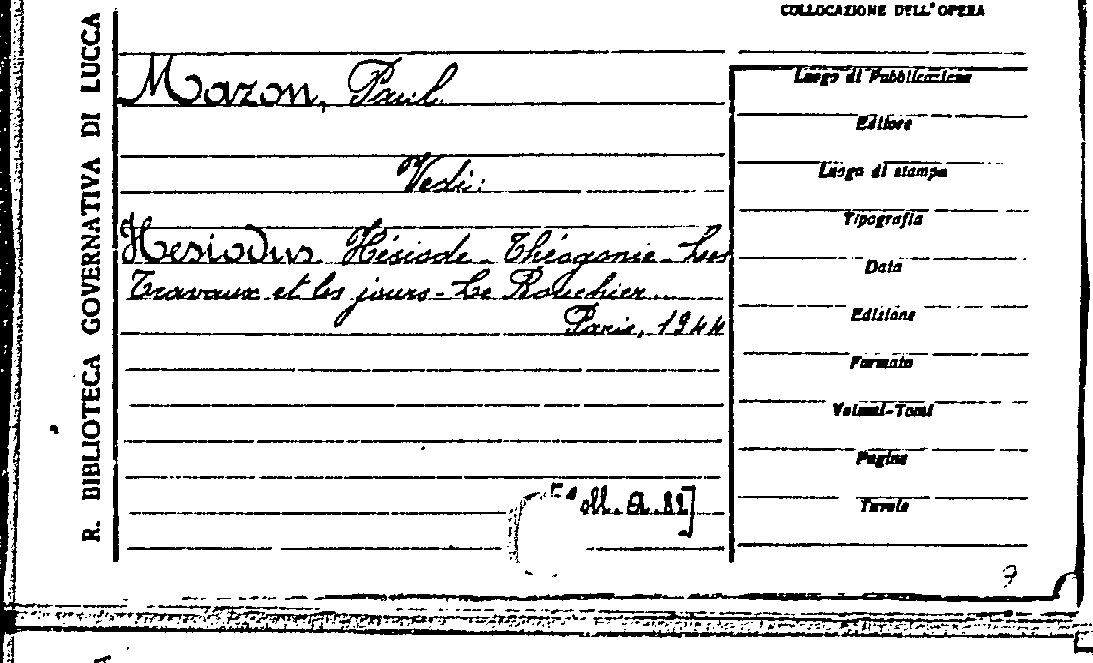 COLLOCAZIONE DELL'OPERA
R. BIBLIOTECA GOVERNATIVA DI LUCCA
Mazon, Paul
Vedi:
Hesiodus Hésiode - Théogonie - Les
Travaux et les jours - Le Bouclier...
Paris, 1944
oll. A. 82]
Luogo di Pubblicazione
Editore
Luogo di stampa
Tipografia
Data
Edizione
Formato
Volumi-Tomi
Pagine
Tavole